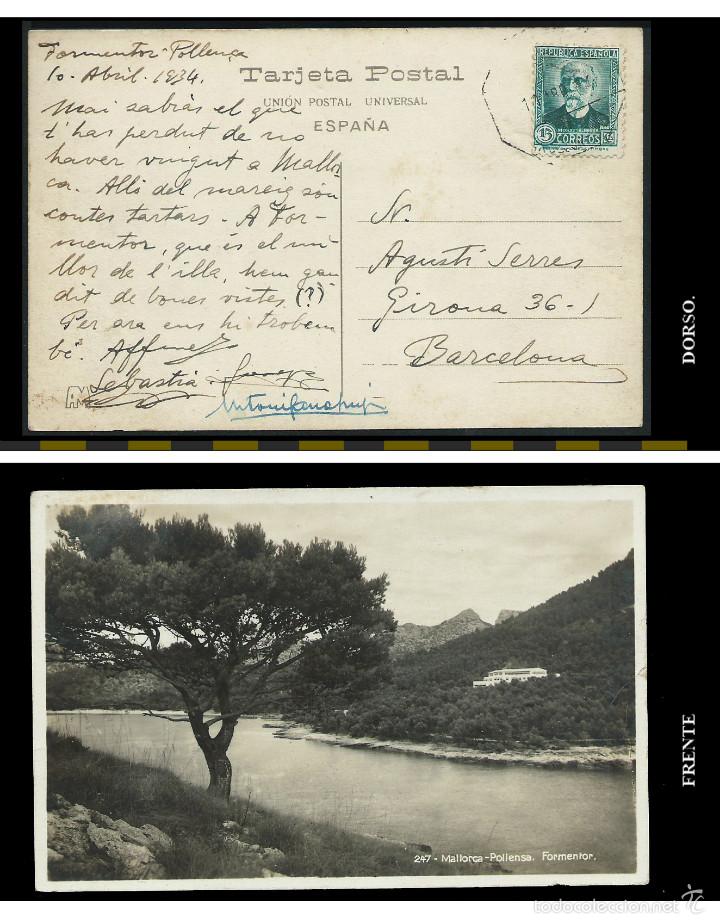 Formentor-Pollença
10. Abril. 1934.
Mai sabràs el que
t'has perdut de no
haver vingut a Mallor-
ca. Allò del mareig són
contes tartars. A For-
mentor, que és el mi-
llor de l'illa, hem gau
dit de bones vistes. (?)
Per ara ens hi trobem
bé. Affmes
Sebastià
Tarjeta Postal
UNIÓN POSTAL UNIVERSAL
ESPAÑA
REPUBLICA ESPAÑOLA
15 CORREOS
N.
Agustí Serres
Girona 36-1
Barcelona
DORSO.
247 - Mallorca-Pollensa. Formentor.
FRENTE
todocoleccion.net TC